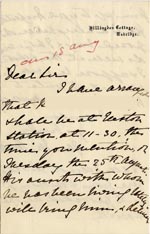 Hillingdon Cottage,
Uxbridge.
ans 18 aug
Dear Sir
I have arranged
that he
shall be at Euston
Station at 11-30. the
time you mention, on
Tuesday the 25th August
His aunt with whom
he has been living lately
will bring him, &